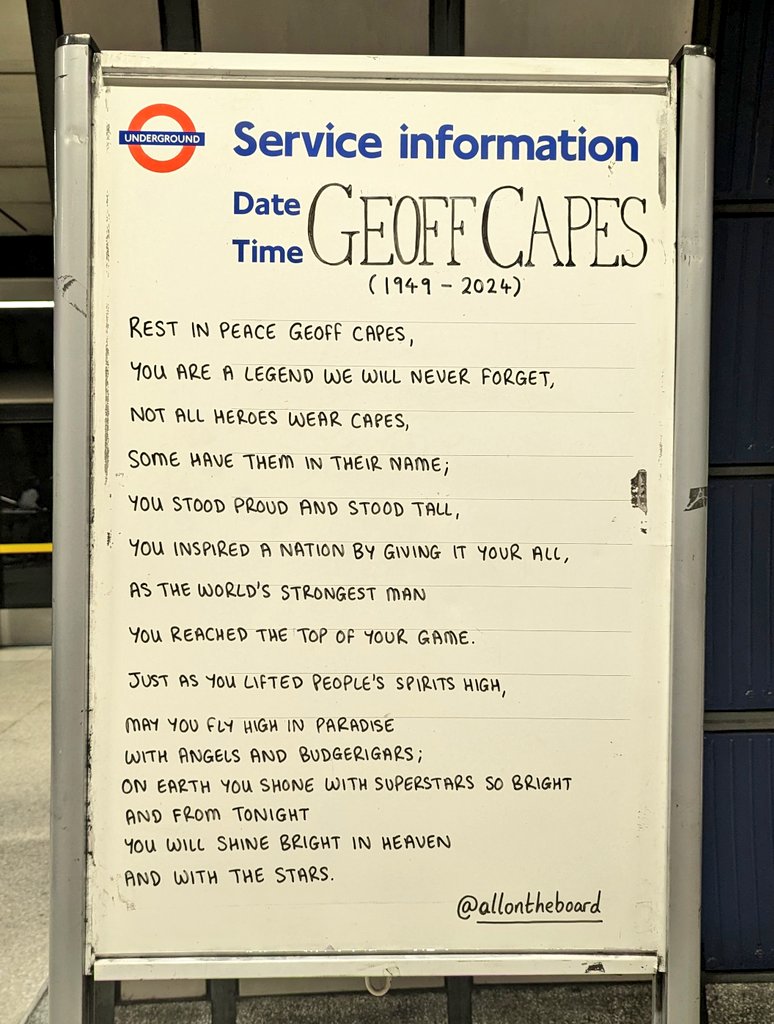 UNDERGROUND
Service information
Date
Time
GEOFF CAPES
(1949 - 2024)
REST IN PEACE GEOFF CAPES,
YOU ARE A LEGEND WE WILL NEVER FORGET,
NOT ALL HEROES WEAR CAPES,
SOME HAVE THEM IN THEIR NAME;
YOU STOOD PROUD AND STOOD TALL,
YOU INSPIRED A NATION BY GIVING IT YOUR ALL,
AS THE WORLD'S STRONGEST MAN
YOU REACHED THE TOP OF YOUR GAME.
JUST AS YOU LIFTED PEOPLE'S SPIRITS HIGH,
MAY YOU FLY HIGH IN PARADISE
WITH ANGELS AND BUDGERIGARS;
ON EARTH YOU SHONE WITH SUPERSTARS SO BRIGHT
AND FROM TONIGHT
YOU WILL SHINE BRIGHT IN HEAVEN
AND WITH THE STARS.
@allontheboard